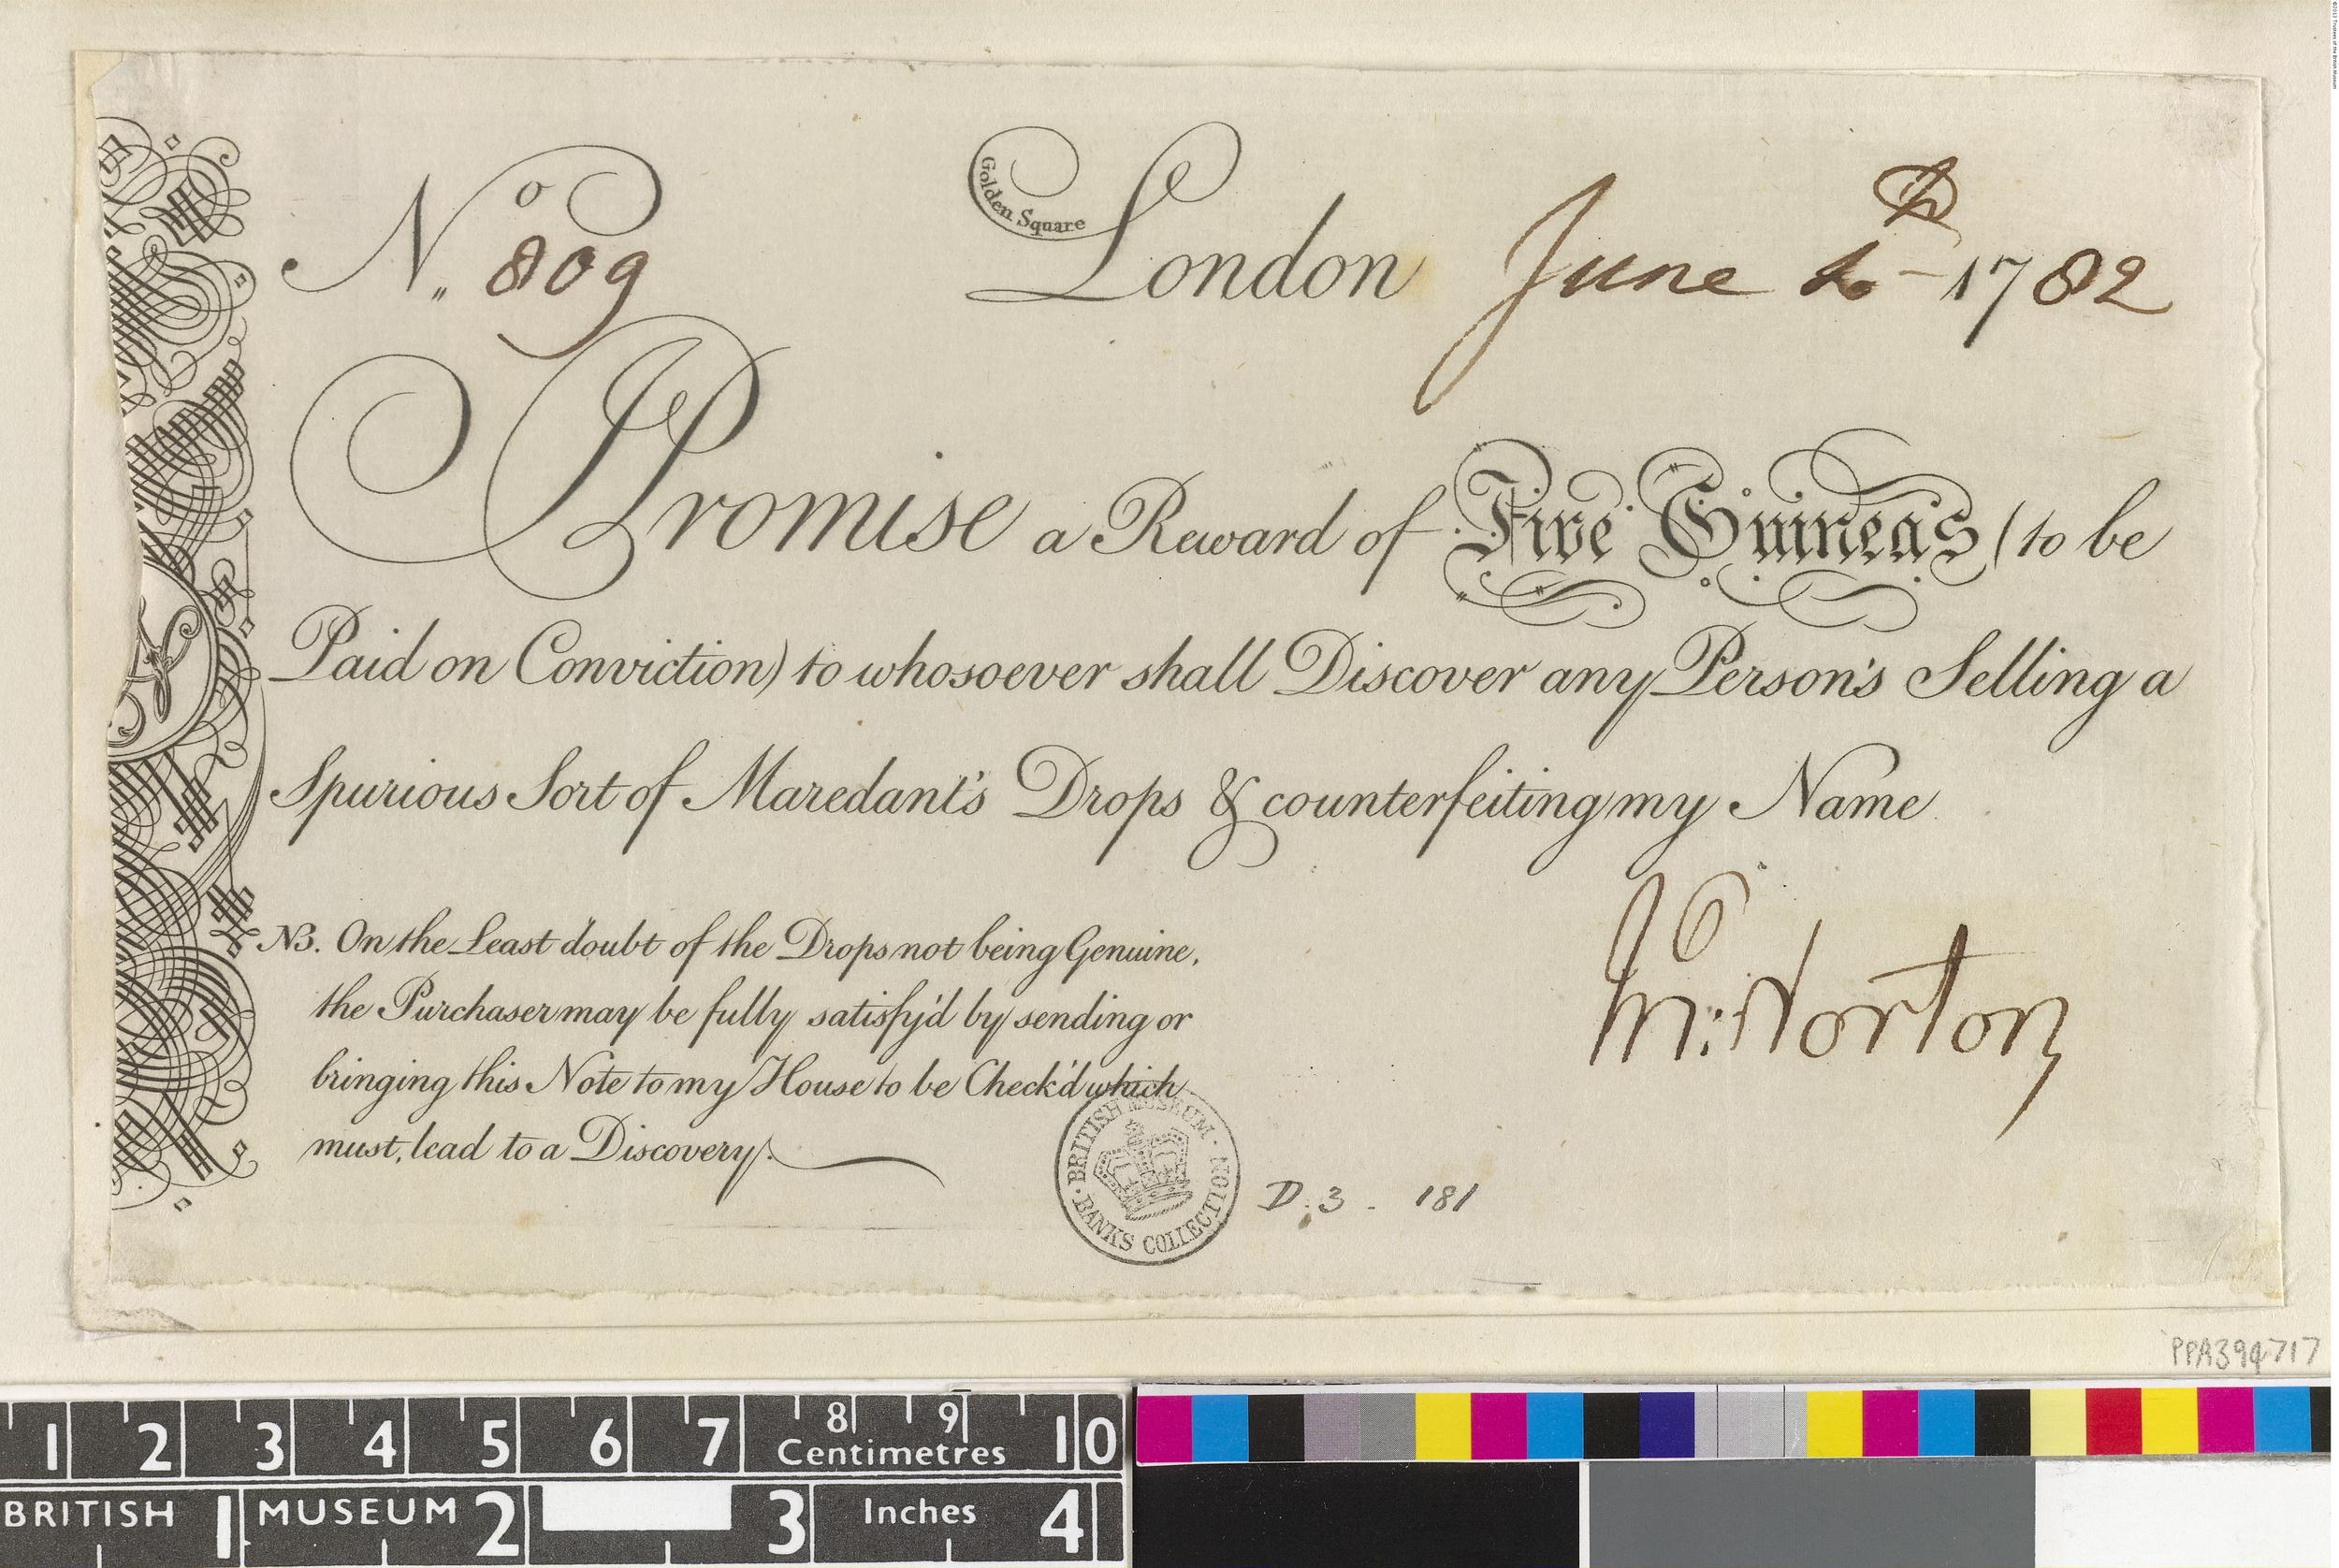 ©2017 Trustees of the British Museum
No. 809
Golden Square
London June 1782
I Promise a Reward of Five Guinea's (to be
Paid on Conviction) to whosoever shall Discover any Person's Selling a
Spurious Sort of Maredant's Drops & counterfeiting my Name
NB. On the Least doubt of the Drops not being Genuine,
the Purchaser may be fully satisfy'd by sending or
bringing this Note to my House to be Check'd which
must, lead to a Discovery.
Norton
BRITISH MUSEUM
BANKS COLLECTION
D.3 - 181
PPA394717
1 2 3 4 5 6 7 8 9 10
Centimetres
BRITISH 1 MUSEUM 2 3 Inches 4